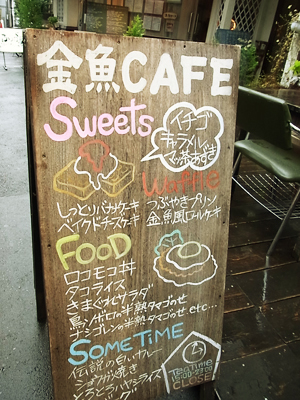 金魚CAFE
Sweets
イチゴ
キャラメル
マッ茶あずき
Waffle
しっとりバナナケーキ
ベイクドチーズケーキ
つぶやきプリン
金魚風ロールケーキ
FOOD
ロコモコ丼
タコライス
きまぐれサラダ
鳥ソボロの半熟タマゴのせ
ナシゴレンの半熟タマゴのせ etc...
SOMETIME
伝説の白いカレー
ション
とろとろハヤシライス
Tea Time
CLOSE